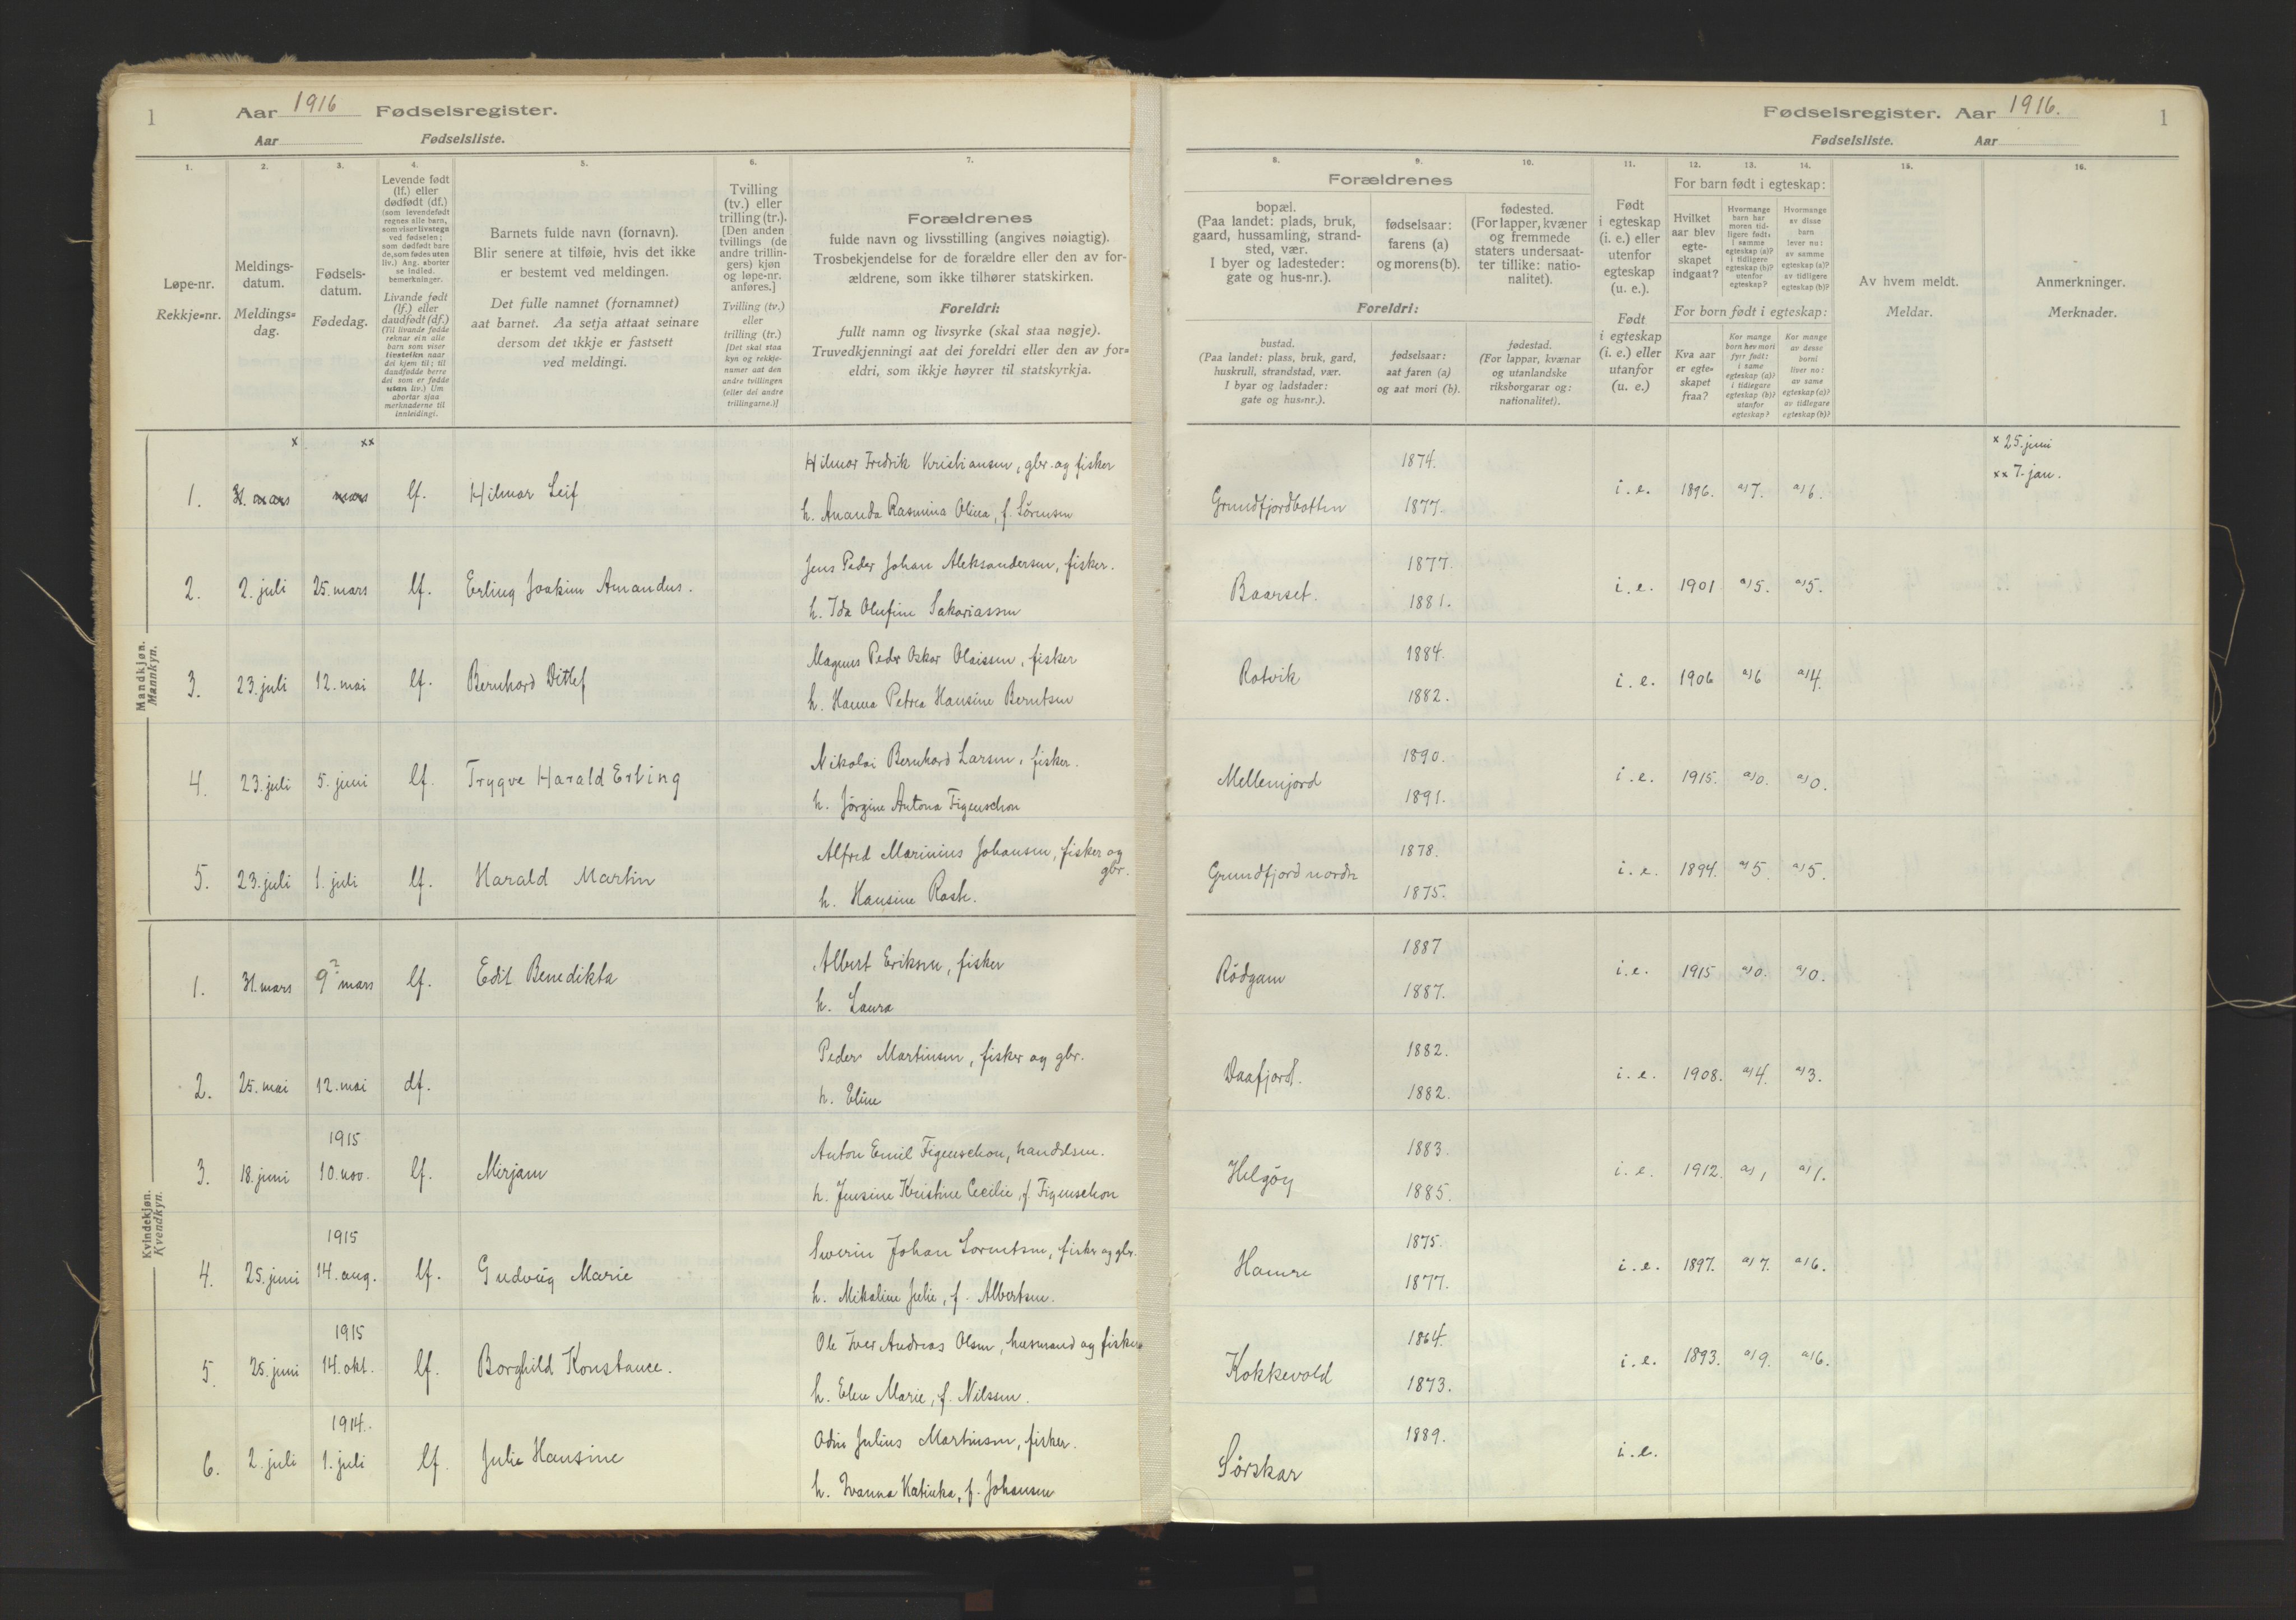 1 Aar 1916 Fødselsregister.
Aar Fødselsliste.
1. 2. 3. 4. 5. 6. 7.
Løpe-nr.
Rekkje-nr.
Meldings-
datum.
Meldings-
dag.
Fødsels-
datum.
Fødedag.
Levende født
(lf.) eller
dødfødt (df.)
(som levendefødt
regnes alle barn,
som viser livstegn
ved fødselen;
som dødfødt bare
de, som fødes uten
liv.) Ang. aborter
se indled.
bemerkninger.
Livande født
(lf.) eller
daudfødt (df.)
(Til livande fødde
reknar ein alle
barn som viser
livsteikn naar
dei kjem til; til
daudfødde berre
dei som er fødde
utan liv.) Um
abortar sjaa
merknaderne til
innleidingi.
Barnets fulde navn (fornavn).
Blir senere at tilføie, hvis det ikke
er bestemt ved meldingen.
Det fulle namnet (fornamnet)
aat barnet. Aa setja attaat seinare
dersom det ikkje er fastsett
ved meldingi.
Tvilling
(tv.) eller
trilling (tr.).
[Den anden
tvillings (de
andre trillin-
gers) kjøn
og løpe-nr.
anføres.]
Tvilling (tv.)
eller
trilling (tr.)
[Det skal staa
kyn og rekkje-
numer aat den
andre tvillingen
(eller dei andre
trillingarne.)]
Forældrenes
fulde navn og livsstilling (angives nøiagtig).
Trosbekjendelse for de forældre eller den av for-
ældrene, som ikke tilhører statskirken.
Foreldri:
fullt namn og livsyrke (skal staa nøgje).
Truvedkjenningi aat dei foreldri eller den av for-
eldri, som ikkje høyrer til statskyrkja.
Fødselsregister. Aar 1916. 1
Fødselsliste. Aar
8. 9. 10. 11. 12. 13. 14. 15. 16.
Forældrenes
bopæl.
(Paa landet: plads, bruk,
gaard, hussamling, strand-
sted, vær.
I byer og ladesteder:
gate og hus-nr.).
fødselsaar:
farens (a)
og morens (b).
fødested.
(For lapper, kvæner
og fremmede
staters undersaat-
ter tillike: natio-
nalitet).
Foreldri:
bustad.
(Paa landet: plass, bruk, gard,
huskrull, strandstad, vær.
I byar og ladstader:
gate og hus-nr.).
fødselsaar:
aat faren (a)
og aat mori (b).
fødestad.
(For lappar, kvænar
og utanlandske
riksborgarar og:
nationalitet).
Født
i egteskap
(i. e.) eller
utenfor
egteskap
(u. e.).
Født
i egteskap
(i. e.) eller
utanfor
(u. e.)
For barn født i egteskap:
Hvilket
aar blev
egte-
skapet
indgaat?
Hvormange
barn har
moren tid-
ligere født,
i samme
egteskap (a)?
i tidligere
egteskap (b)?
utenfor
egteskap?
Hvormange
av disse
barn
lever nu:
av samme
egteskap (a)?
av tidligere
egteskap (b)?
For born født i egteskap:
Kva aar
er egte-
skapet
fraa?
Kor mange
born hev mori
fyrr født:
i same
egteskap (a)?
i tidlegare
egteskap (b)?
utanfor
egteskap?
Kor mange
av desse
borni
liver no:
av same
egteskap (a)?
av tidlegare
egteskap (b)?
Av hvem meldt.
Meldar.
Anmerkninger.
Merknader.
Mandkjøn.
Mannkyn.
x xx
1. 31. mars mars lf. Hilmar Leif
Hilmar Fredrik Kristiansen, gbr. og fisker
h. Ananda Rasmina Olina, f. Sörensen
Grundfjordbotten 1874. 1877. i. e. 1896. a) 7. a) 6.
x 25. juni
xx 7. jan.
2. 2. juli 25. mars lf. Erling Joakim Amandus.
Jens Peder Johan Aleksandersen, fisker.
h. Ida Olufine Sakariassen
Baarset. 1877. 1881. i. e. 1901 a) 5. a) 5.
3. 23. juli 12. mai lf. Bernhard Ditlef
Magnus Peder Oskar Olaissen, fisker
h. Hanna Petrea Hansine Berntsen
Rotvik 1884. 1882. i. e. 1906 a) 6 a) 4.
4. 23. juli 5. juni lf. Trygve Harald Erling
Nikolai Bernhard Larsen, fisker.
h. Jörgine Antona Figenschou
Mellemjord 1890. 1891. i. e. 1915. a) 0. a) 0.
5. 23. juli 1. juli lf. Harald Martin
Alfred Marinius Johansen, fisker og
gbr.
h. Hansine Rask.
Grundfjord nordre 1878. 1875. i. e. 1894. a) 5. a) 5.
Kvindekjøn.
Kvendkyn.
1. 31. mars 9? mars lf. Edit Benedikta
Albert Eriksen, fisker
h. Laura
Rödgam 1887 1887. i. e. 1915 a) 0. a) 0.
2. 25. mai 12. mai df.
Peder Martinsen, fisker og gbr.
h. Eline
Daafjord. 1882. 1882. i. e. 1908. a) 4. a) 3.
1915
3. 18. juni 10. nov. lf. Mirjam
Anton Emil Figenschou, handelsm.
h. Jensine Kristine Cecilie, f. Figenschou
Helgöy 1883. 1885. i. e. 1912. a) 1 a) 1.
1915
4. 25. juni 14. aug. lf. Gudvig Marie
Severin Johan Lorentsen, fisker og gbr.
h. Mikaline Julie, f. Albertsen.
Hamre 1875. 1877. i. e. 1897. a) 7. a) 6.
1915
5. 25. juni 14. okt. lf. Borghild Konstance.
Ole Iver Andreas Olsen, husmand og fisker
h. Elen Marie, f. Nilssen.
Kokkevold 1864. 1873. i. e. 1893. a) 9. a) 6.
1914.
6. 2. juli 1. juli lf. Julie Hansine
Odin Julius Martinsen, fisker.
h. Ivanna Katinka, f. Johansen
Sörskar 1889. i. e.